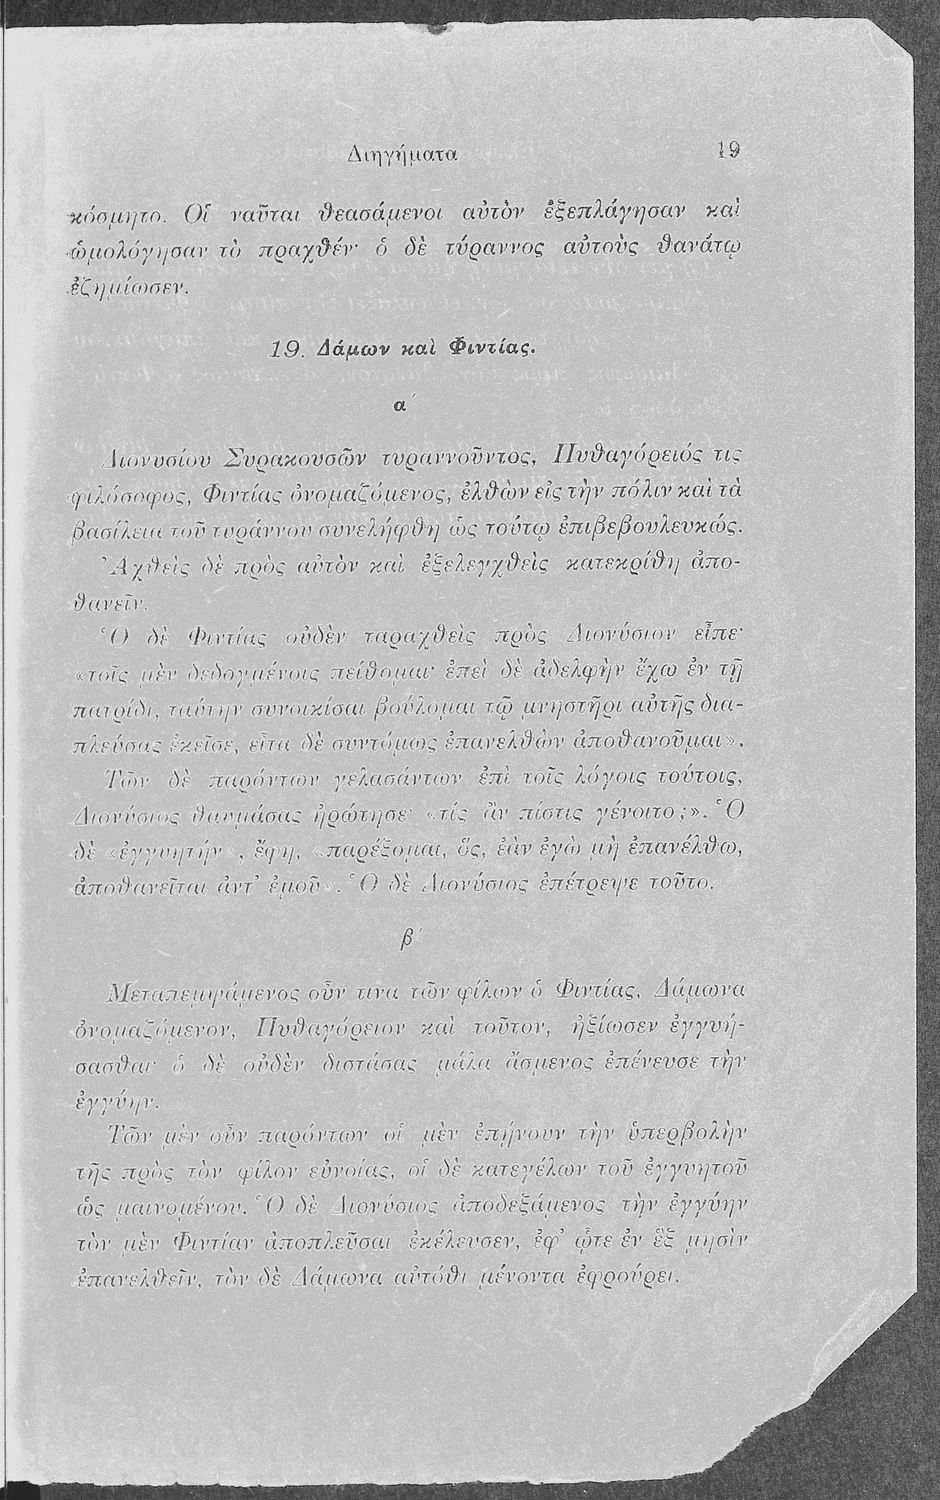 Διηγήματα 19
κόσμητο. Οἱ ναῦται θεασάμενοι αὐτὸν ἐξεπλάγησαν καὶ
ὡμολόγησαν τὸ πραχθέν· ὁ δὲ τύραννος αὐτοὺς θανάτῳ
ἐζημίωσεν.
19. Δάμων καὶ Φιντίας.
α΄
Διονυσίου Συρακουσῶν τυραννοῦντος, Πυθαγόρειός τις
φιλόσοφος, Φιντίας ὀνομαζόμενος, ἐλθὼν εἰς τὴν πόλιν καὶ τὰ
βασίλεια τοῦ τυράννου συνελήφθη ὡς τούτῳ ἐπιβεβουλευκώς.
Ἀχθεὶς δὲ πρὸς αὐτὸν καὶ ἐξελεγχθεὶς κατεκρίθη ἀπο-
θανεῖν.
Ὁ δὲ Φιντίας οὐδὲν ταραχθεὶς πρὸς Διονύσιον εἶπε·
«τοῖς μὲν δεδογμένοις πείθομαι· ἐπεὶ δὲ ἀδελφὴν ἔχω ἐν τῇ
πατρίδι, ταύτην συνοικίσαι βούλομαι τῷ μνηστῆρι αὐτῆς δια-
πλεύσας ἐκεῖσε, εἶτα δὲ συντόμως ἐπανελθὼν ἀποθανοῦμαι».
Τῶν δὲ παρόντων γελασάντων ἐπὶ τοῖς λόγοις τούτοις,
Διονύσιος θαυμάσας ἠρώτησε· «τίς ἂν πίστις γένοιτο;». Ὁ
δὲ «ἐγγυητήν», ἔφη, «παρέξομαι, ὅς, ἐὰν ἐγὼ μὴ ἐπανέλθω,
ἀποθανεῖται ἀντ' ἐμοῦ». Ὁ δὲ Διονύσιος ἐπέτρεψε τοῦτο.
β΄
Μεταπεμψάμενος οὖν τινα τῶν φίλων ὁ Φιντίας, Δάμωνα
ὀνομαζόμενον, Πυθαγόρειον καὶ τοῦτον, ἠξίωσεν ἐγγυή-
σασθαι· ὁ δὲ οὐδὲν διστάσας μάλα ἄσμενος ἐπένευσε τὴν
ἐγγύην.
Τῶν μὲν οὖν παρόντων οἱ μὲν ἐπῄνουν τὴν ὑπερβολὴν
τῆς πρὸς τὸν φίλον εὐνοίας, οἱ δὲ κατεγέλων τοῦ ἐγγυητοῦ
ὡς μαινομένου. Ὁ δὲ Διονύσιος ἀποδεξάμενος τὴν ἐγγύην
τὸν μὲν Φιντίαν ἀποπλεῦσαι ἐκέλευσεν, ἐφ' ᾧτε ἐν ἓξ μησὶν
ἐπανελθεῖν, τὸν δὲ Δάμωνα αὐτόθι μένοντα ἐφρούρει.